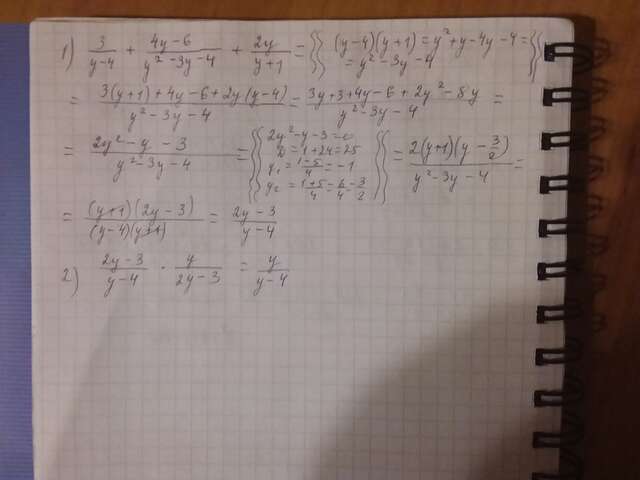 1) 3/(y-4) + (4y-6)/(y²-3y-4) + 2y/(y+1) = {{ (y-4)(y+1) = y²+y-4y-4 = = y²-3y-4 }} =
= (3(y+1)+4y-6+2y(y-4))/(y²-3y-4) = (3y+3+4y-6+2y²-8y)/(y²-3y-4) =
= (2y²-y-3)/(y²-3y-4) = {{ 2y²-y-3=0 D=1+24=25 y₁=(1-5)/4=-1 y₂=(1+5)/4=6/4=3/2 }} = (2(y+1)(y-3/2))/(y²-3y-4) =
= ((y+1)(2y-3))/((y-4)(y+1)) = (2y-3)/(y-4)
2) (2y-3)/(y-4) · y/(2y-3) = y/(y-4)